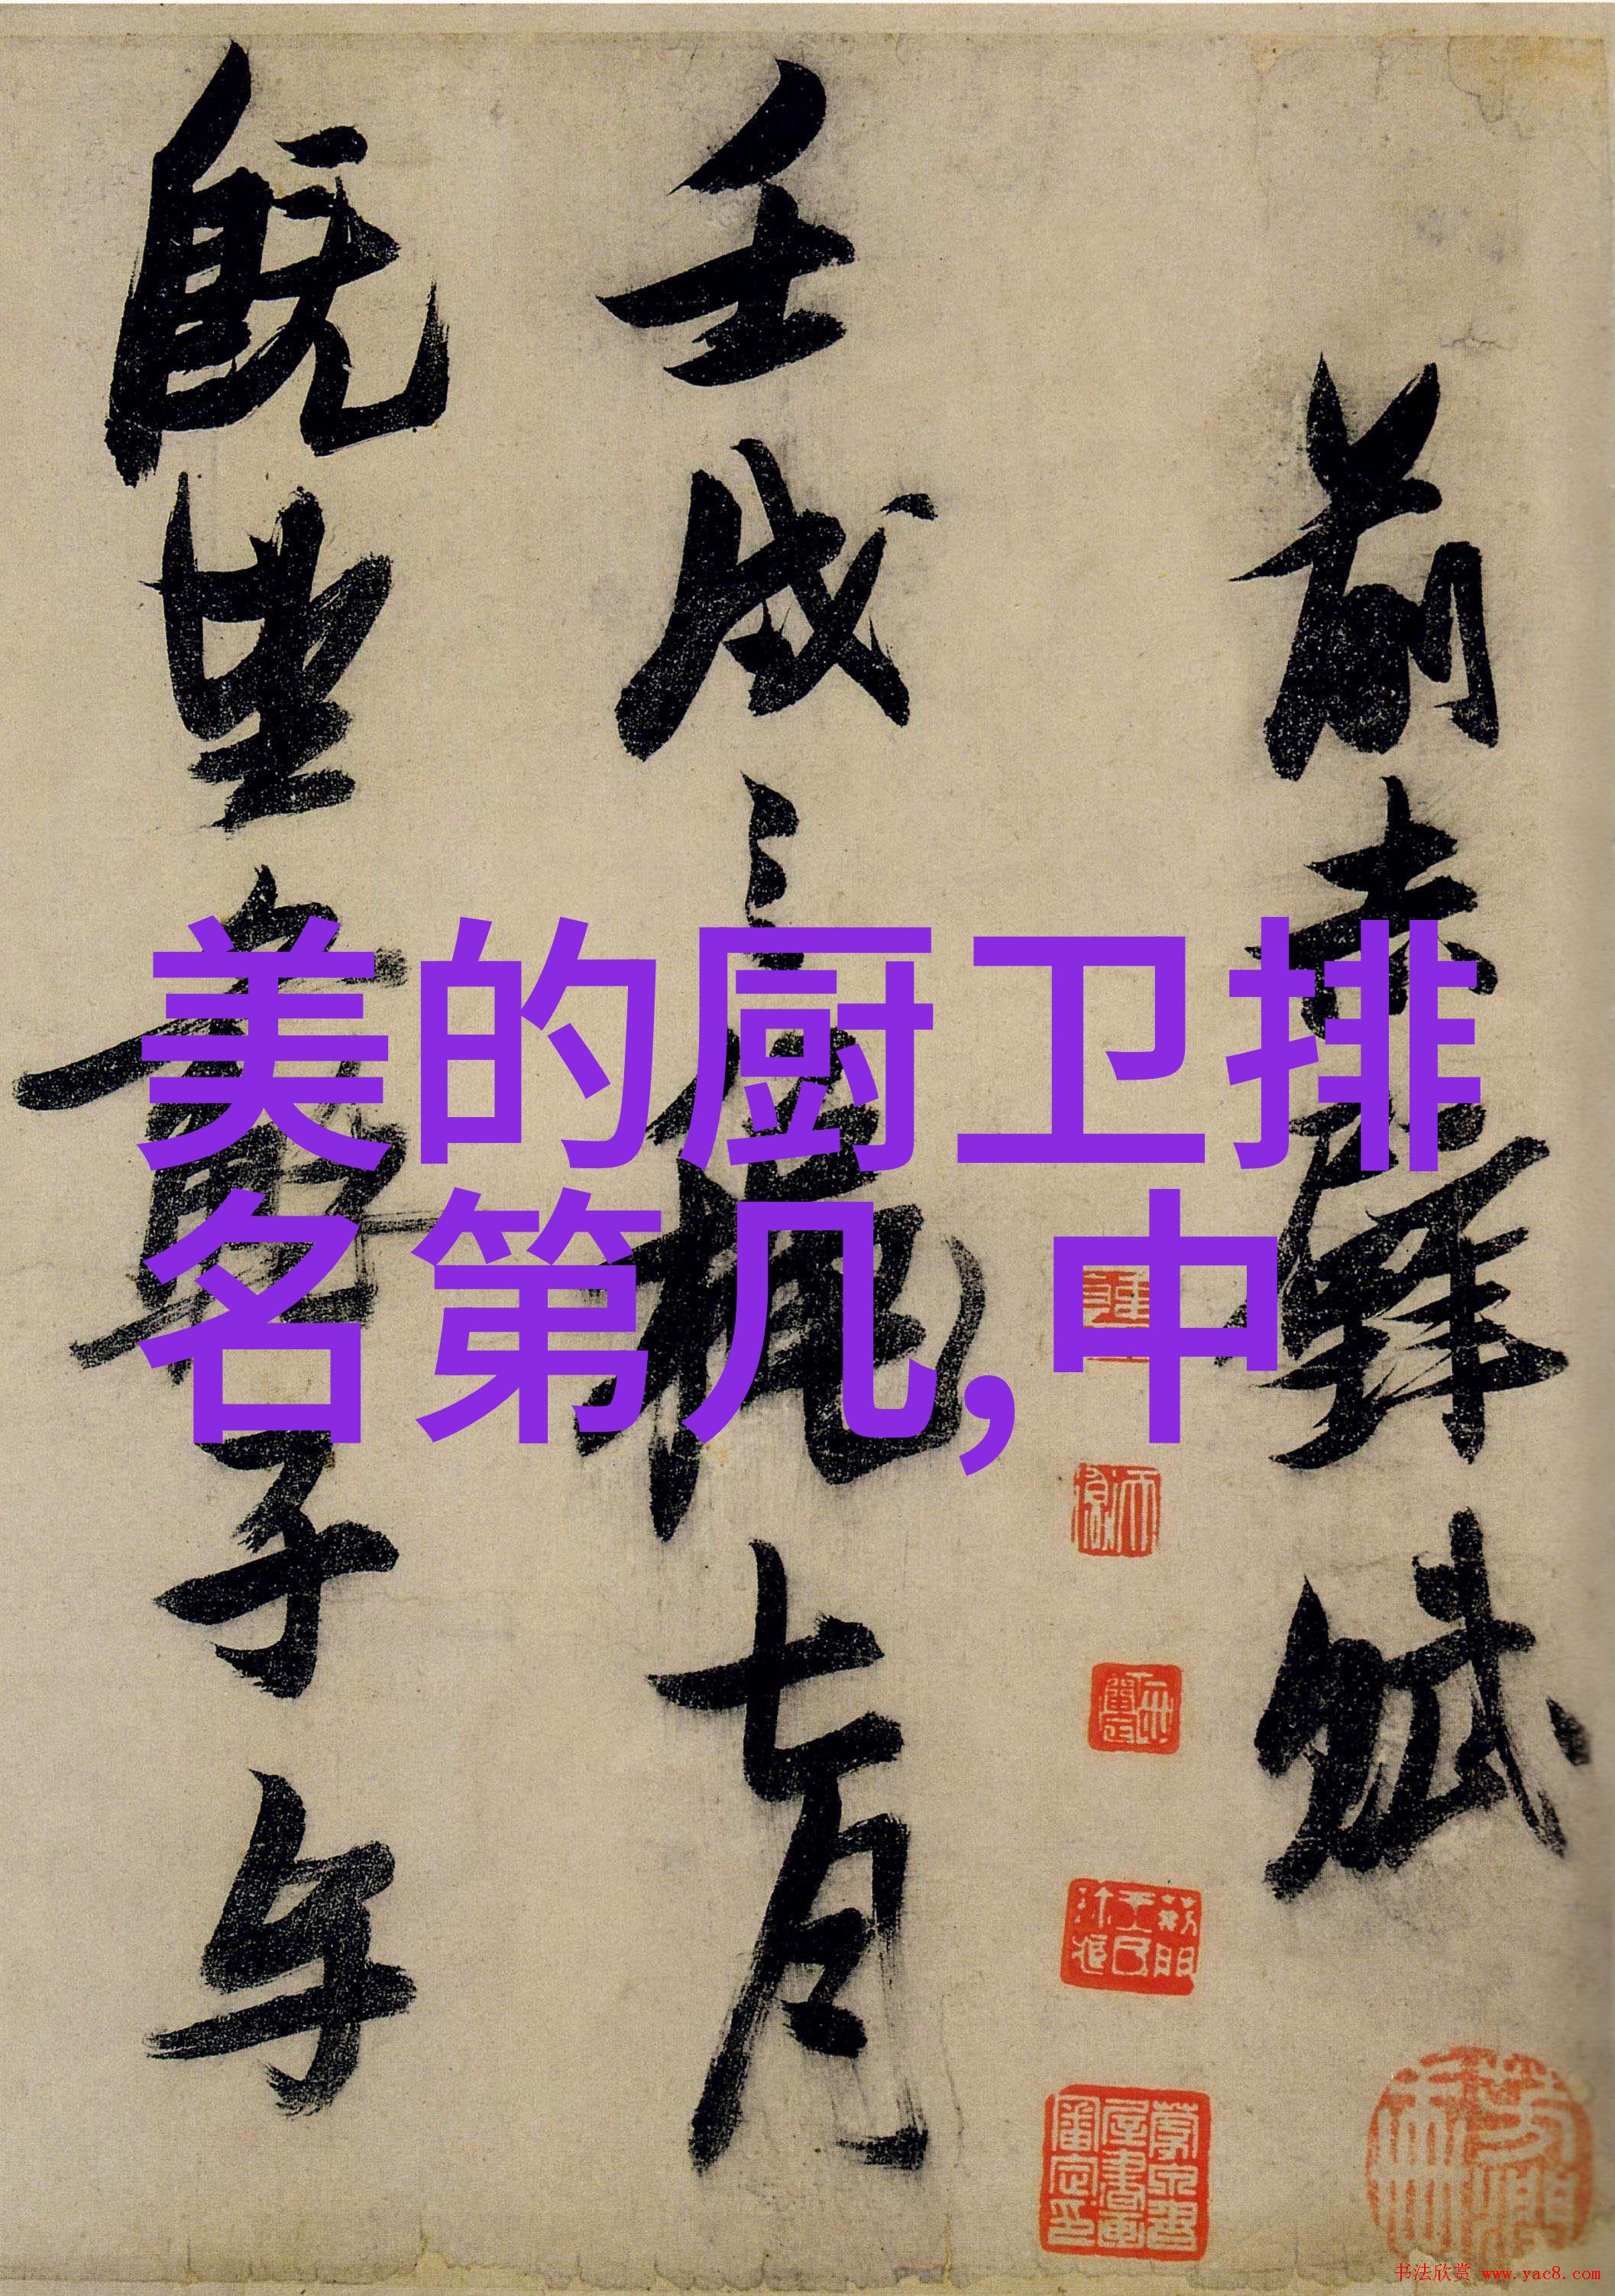 前赤壁賦
壬戌之秋七月
既望蘇子与
美的厨卫排
名第几,中
书法欣赏 www.yac8.com